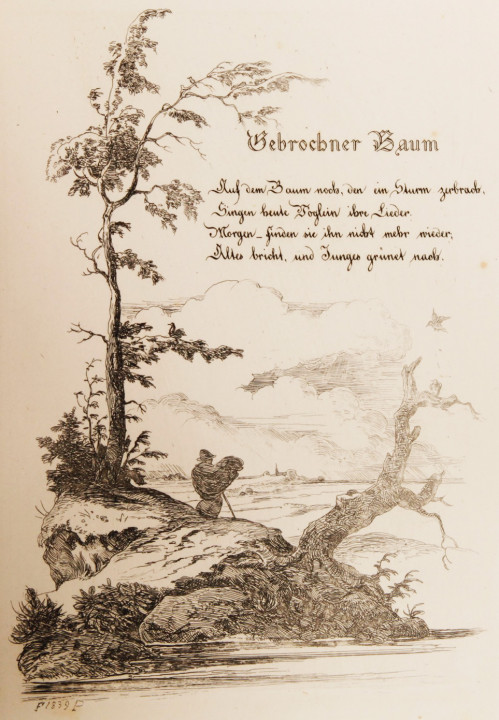 Gebrochner Baum
Auf dem Baum noch, den ein Sturm zerbrach,
Singen heute Vöglein ihre Lieder.
Morgen finden sie ihn nicht mehr wieder,
Altes bricht, und Junges grünet nach.
F 1839 F